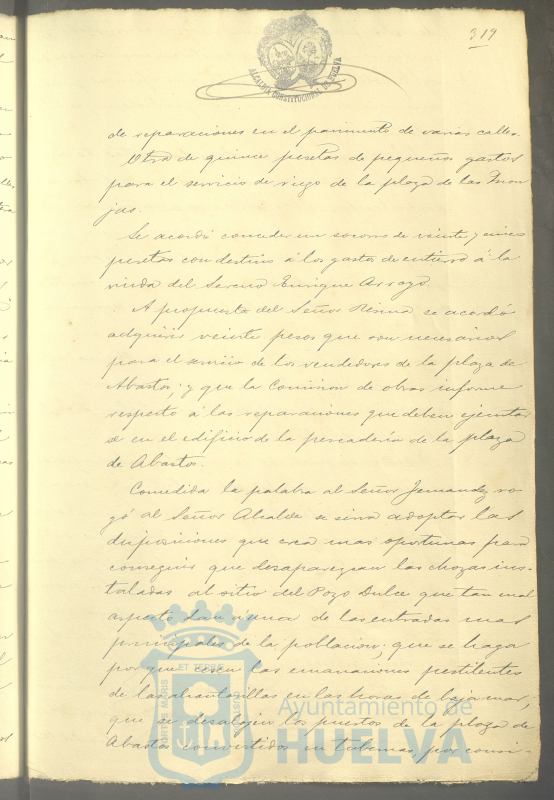 319
ALCALDIA CONSTITUCIONAL DE HUELVA
de reparaciones en el pavimento de varias calles.
Otra de quince pesetas de pequeños gastos
para el servicio de riego de la plaza de las Mon
jas.
Se acordó conceder un socorro de veinte y cinco
pesetas con destino á los gastos de entierro á la
viuda del Sereno Enrique Arroyo.
A propuesta del Señor se acordó
adquirir veinte pesos que son necesarios
para el servicio de los vendedores de la plaza de
Abastos; y que la Comision de obras informe
respecto á las reparaciones que deben ejecutar
se en el edificio de la pescadería de la plaza
de Abastos.
Concedida la palabra al Señor Fernandez ro
gó al Señor Alcalde se sirva adoptar las
disposiciones que crea mas oportunas para
conseguir que desaparezcan las chozas ins-
taladas al sitio del Pozo Dulce que tan mal
aspecto dan á una de las entradas mas
principales de la poblacion; que se haga
porque cesen las emanaciones pestilentes
de las alcantarillas en las horas de baja mar;
que se desalojen los puestos de la plaza de
Abastos convertidos en tabernas, por consi-
PORTUS MARIS ET TERRE CUSTODIA
Ayuntamiento de
HUELVA